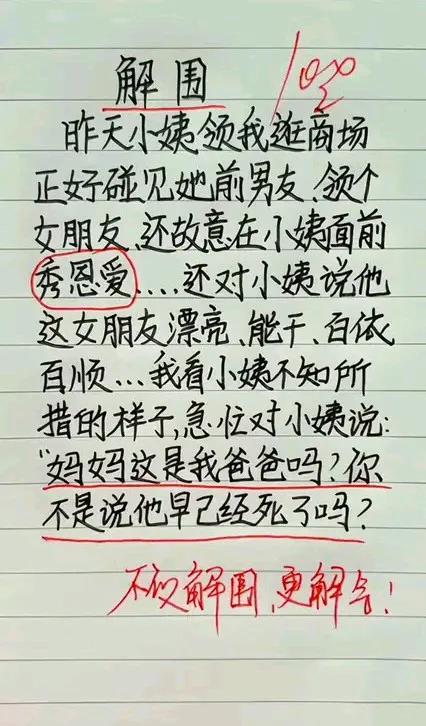 解围
100
昨天小姨领我逛商场
正好碰见她前男友、领个
女朋友、还故意在小姨面前
秀恩爱....还对小姨说他
这女朋友漂亮、能干、百依
百顺...我看小姨不知所
措的样子,急忙对小姨说:
“妈妈这是我爸爸吗?你
不是说他早已经死了吗?
不仅解围、更解气!